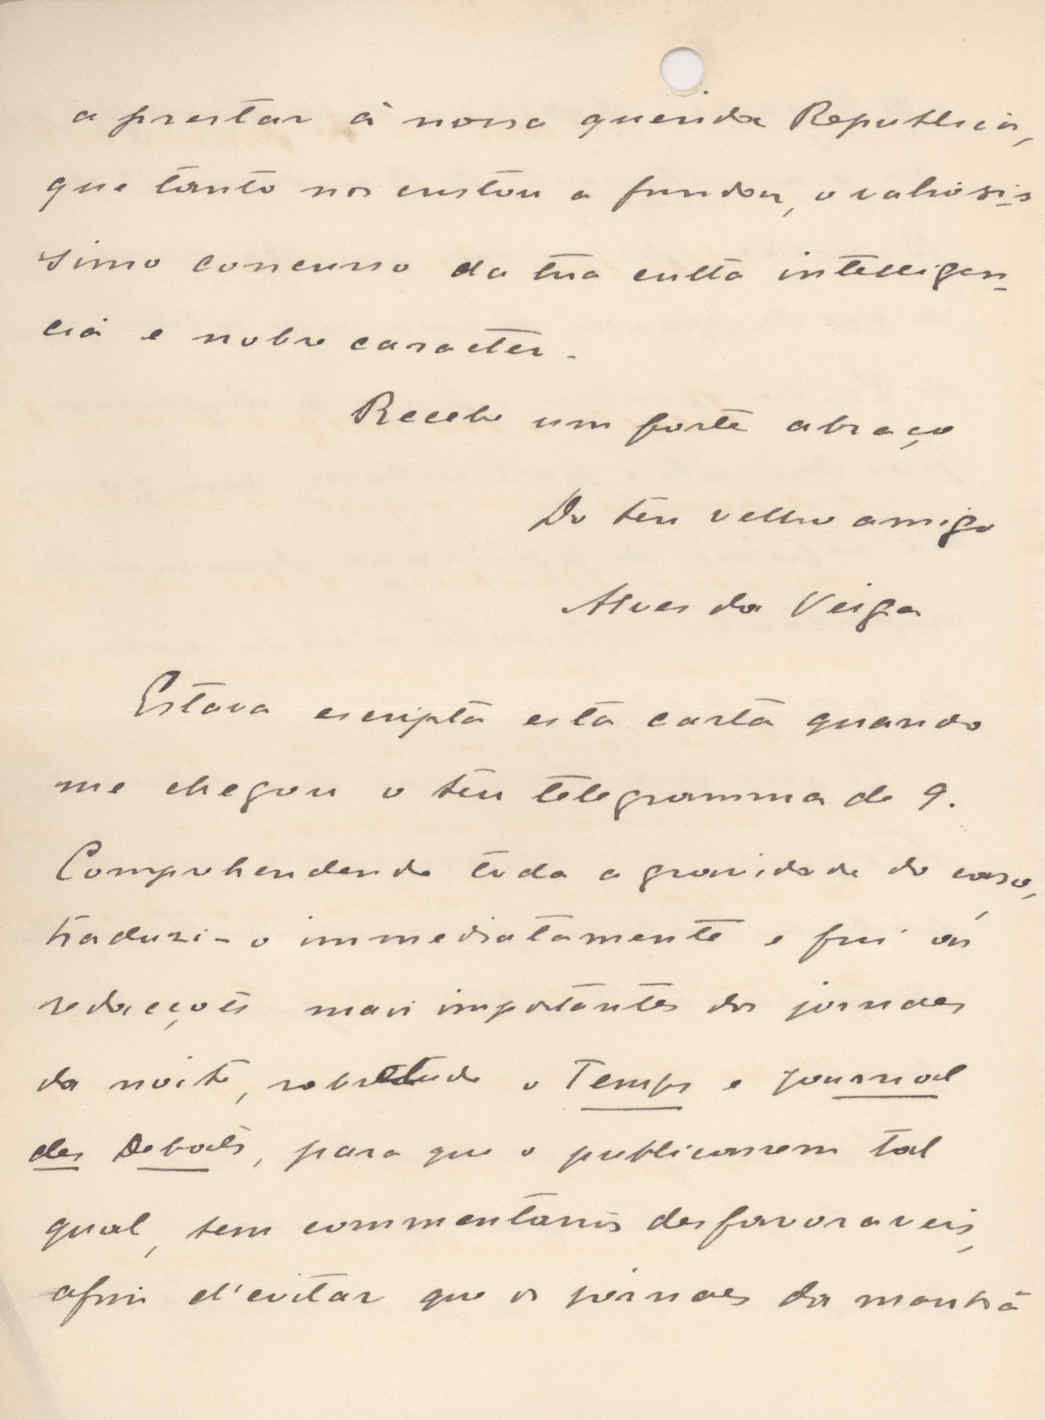 a prestar á nossa querida Republica,
que tanto nos custou a fundar, o valiosis-
simo concurso da tua culta intelligen-
cia e nobre caracter.
Recebe um forte abraço
Do teu velho amigo
Alves da Veiga
Estava escripta esta carta quando
me chegou o teu telegramma de 9.
Comprehendendo toda a gravidade do caso,
traduzi-o immediatamente e fui ás
redacções mais importantes dos jornaes
da noite, sobretudo o Temps e Journal
des Debats, para que o publicassem tal
qual, sem commentarios desfavoraveis,
afim d'evitar que os jornaes da manhã